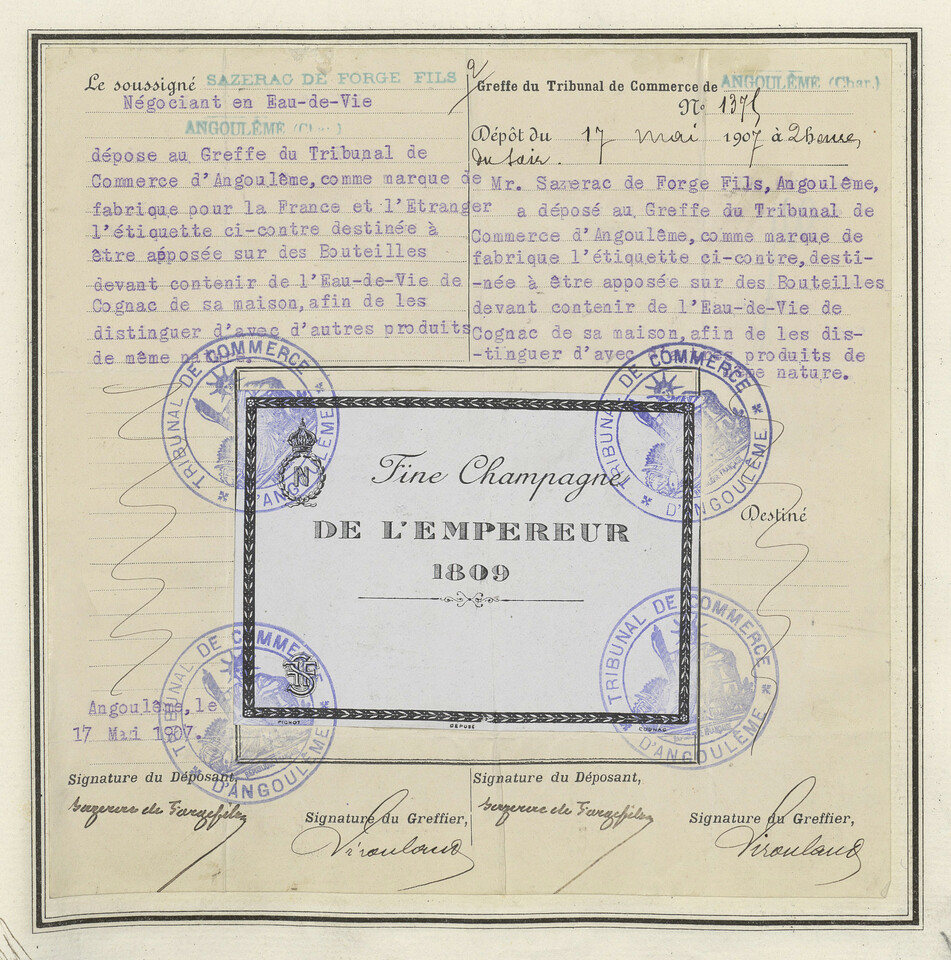 Le soussigné SAZERAC DE FORGE FILS
Négociant en Eau-de-Vie
ANGOULÊME (Char.)
dépose au Greffe du Tribunal de
Commerce d'Angoulême, comme marque de
fabrique pour la France et l'Etranger
l'étiquette ci-contre destinée à
être apposée sur des Bouteilles
devant contenir de l'Eau-de-Vie de
Cognac de sa maison, afin de les
distinguer d'avec d'autres produits
de même nature.
Angoulême, le
17 Mai 1907.
Signature du Déposant,
Sazerac de Forge fils
Signature du Greffier,
Greffe du Tribunal de Commerce de ANGOULÊME (Char.)
N° 1375
Dépôt du 17 mai 1907 à 2 heures
du soir.
Mr. Sazerac de Forge Fils, Angoulême,
a déposé au Greffe du Tribunal de
Commerce d'Angoulême, comme marque de
fabrique l'étiquette ci-contre, desti-
-née à être apposée sur des Bouteilles
devant contenir de l'Eau-de-Vie de
Cognac de sa maison, afin de les dis-
-tinguer d'avec produits de
même nature.
Destiné
Signature du Déposant,
Sazerac de Forge fils
Signature du Greffier,
N
Fine Champagne
DE L'EMPEREUR
1809
PICHOT
DEPOSÉ
COGNAC
TRIBUNAL DE COMMERCE D'ANGOULÊME
TRIBUNAL DE COMMERCE D'ANGOULÊME
TRIBUNAL DE COMMERCE D'ANGOULÊME
TRIBUNAL DE COMMERCE D'ANGOULÊME